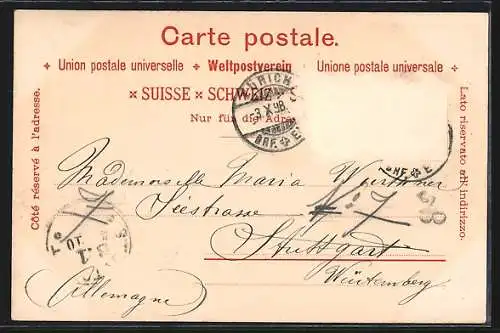 Carte postale.
Union postale universelle Weltpostverein Unione postale universale
SUISSE SCHWEIZ
Nur für die Adre
Côté réservé à l'adresse.
Lato riservato all'indirizzo.
3.X.98
BRF. E
Mademoiselle Maria
Seestrasse
Stuttgart
Württemberg
(Allemagne)